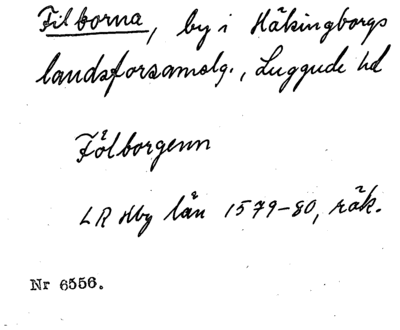 Filborna, by i Hälsingborgs
landsförsamlg., Luggude hd
Fålborgenn
LR Hby län 1579-80, räk.
Nr 6556.